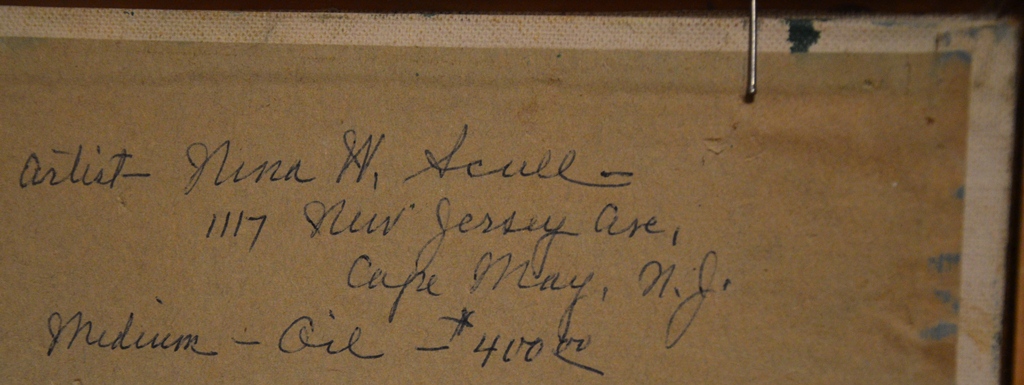 Artist - Nina W. Scull -
1117 New Jersey Ave,
Cape May, N.J.
Medium - Oil - $400 00